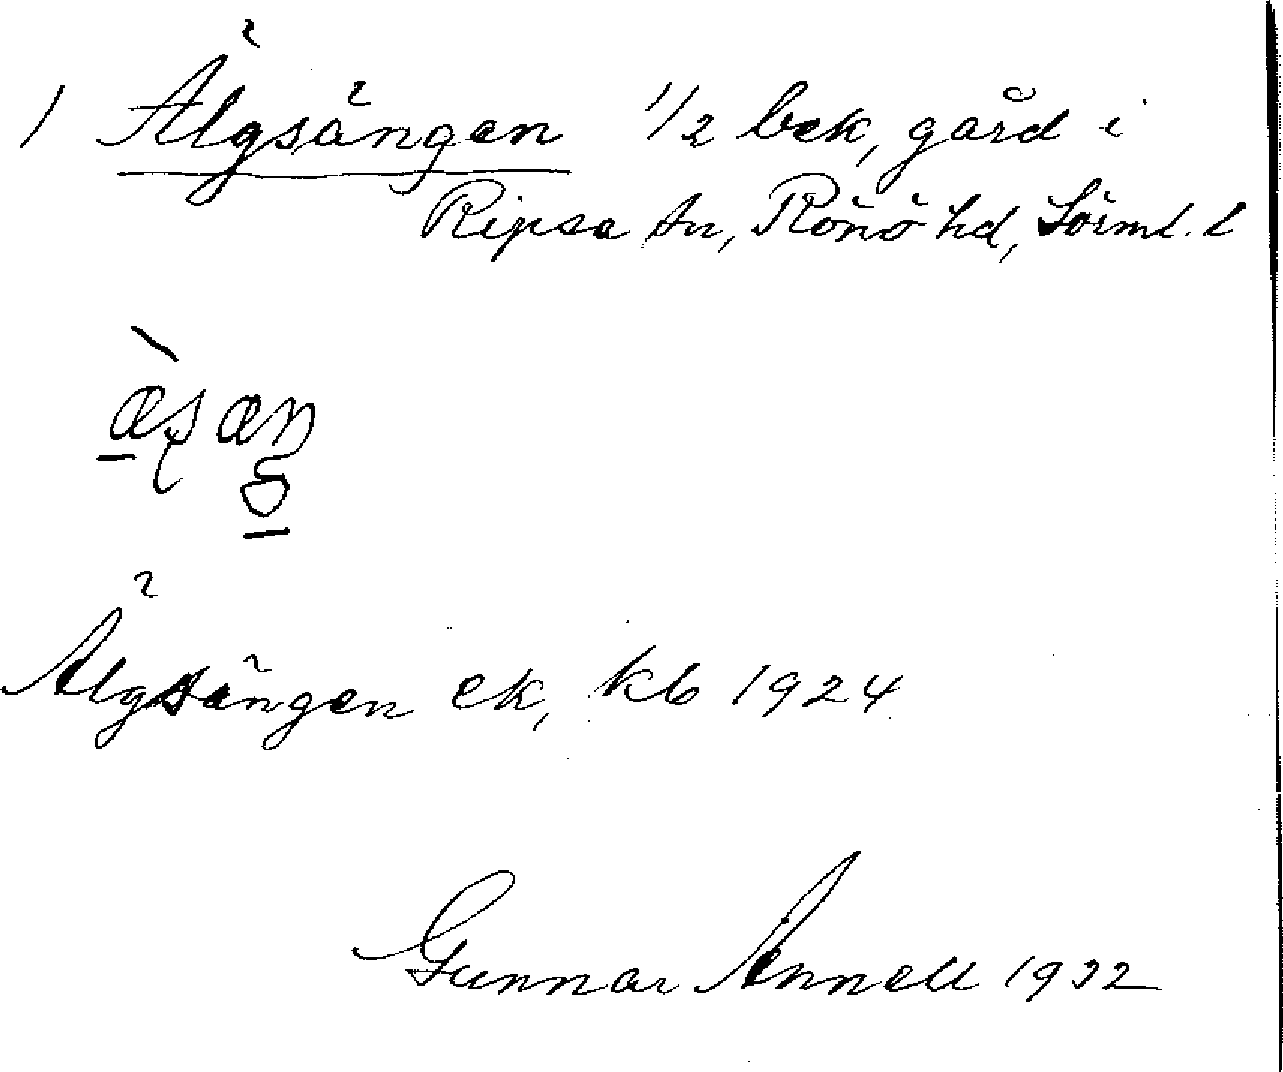 1 Älgsängen 1/2 bek, gård i
Ripsa sn, Rönö hd, Sörml. l
Älgsängen ek, kb 1924
Gunnar Annell 1932